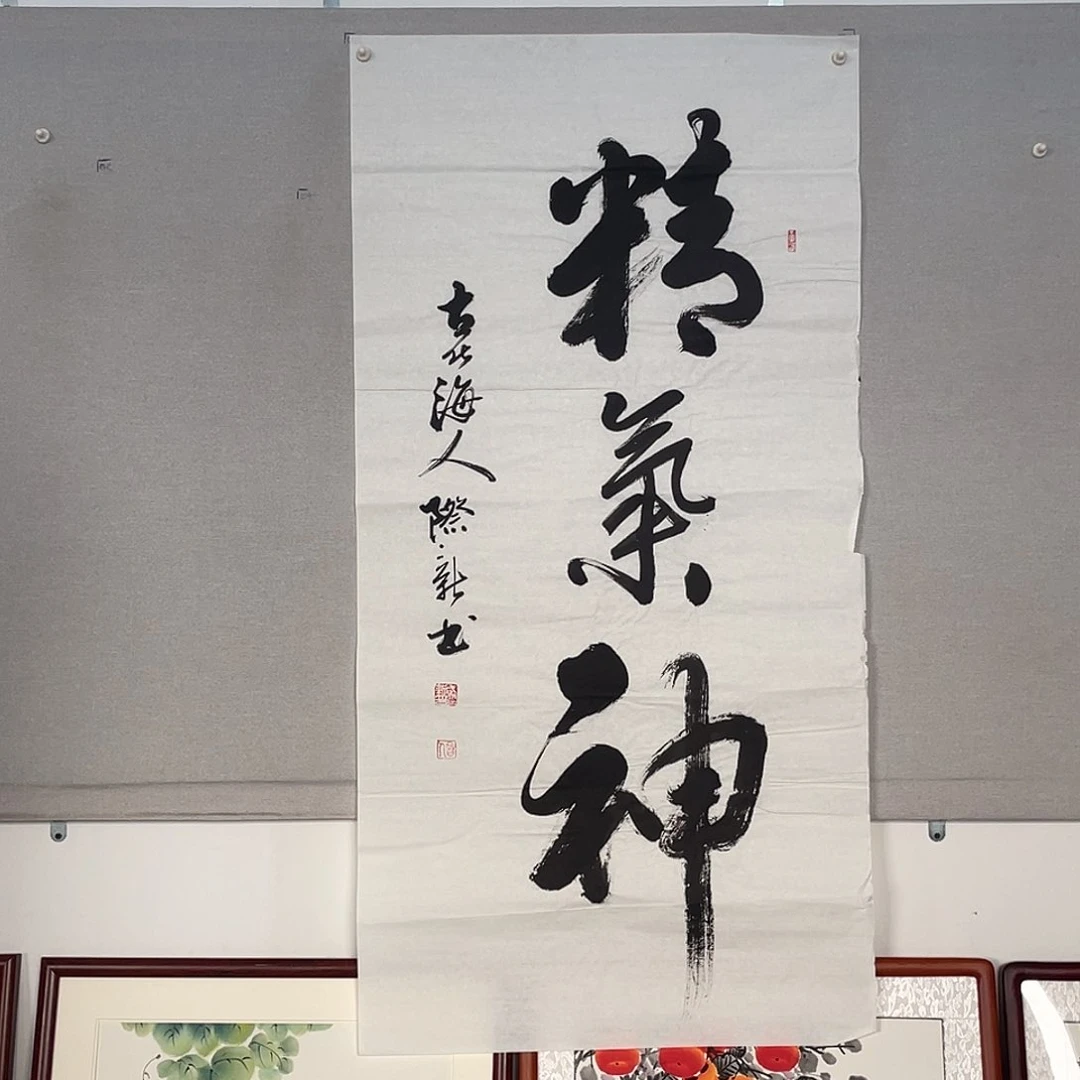 精氣神
古北海人際新书